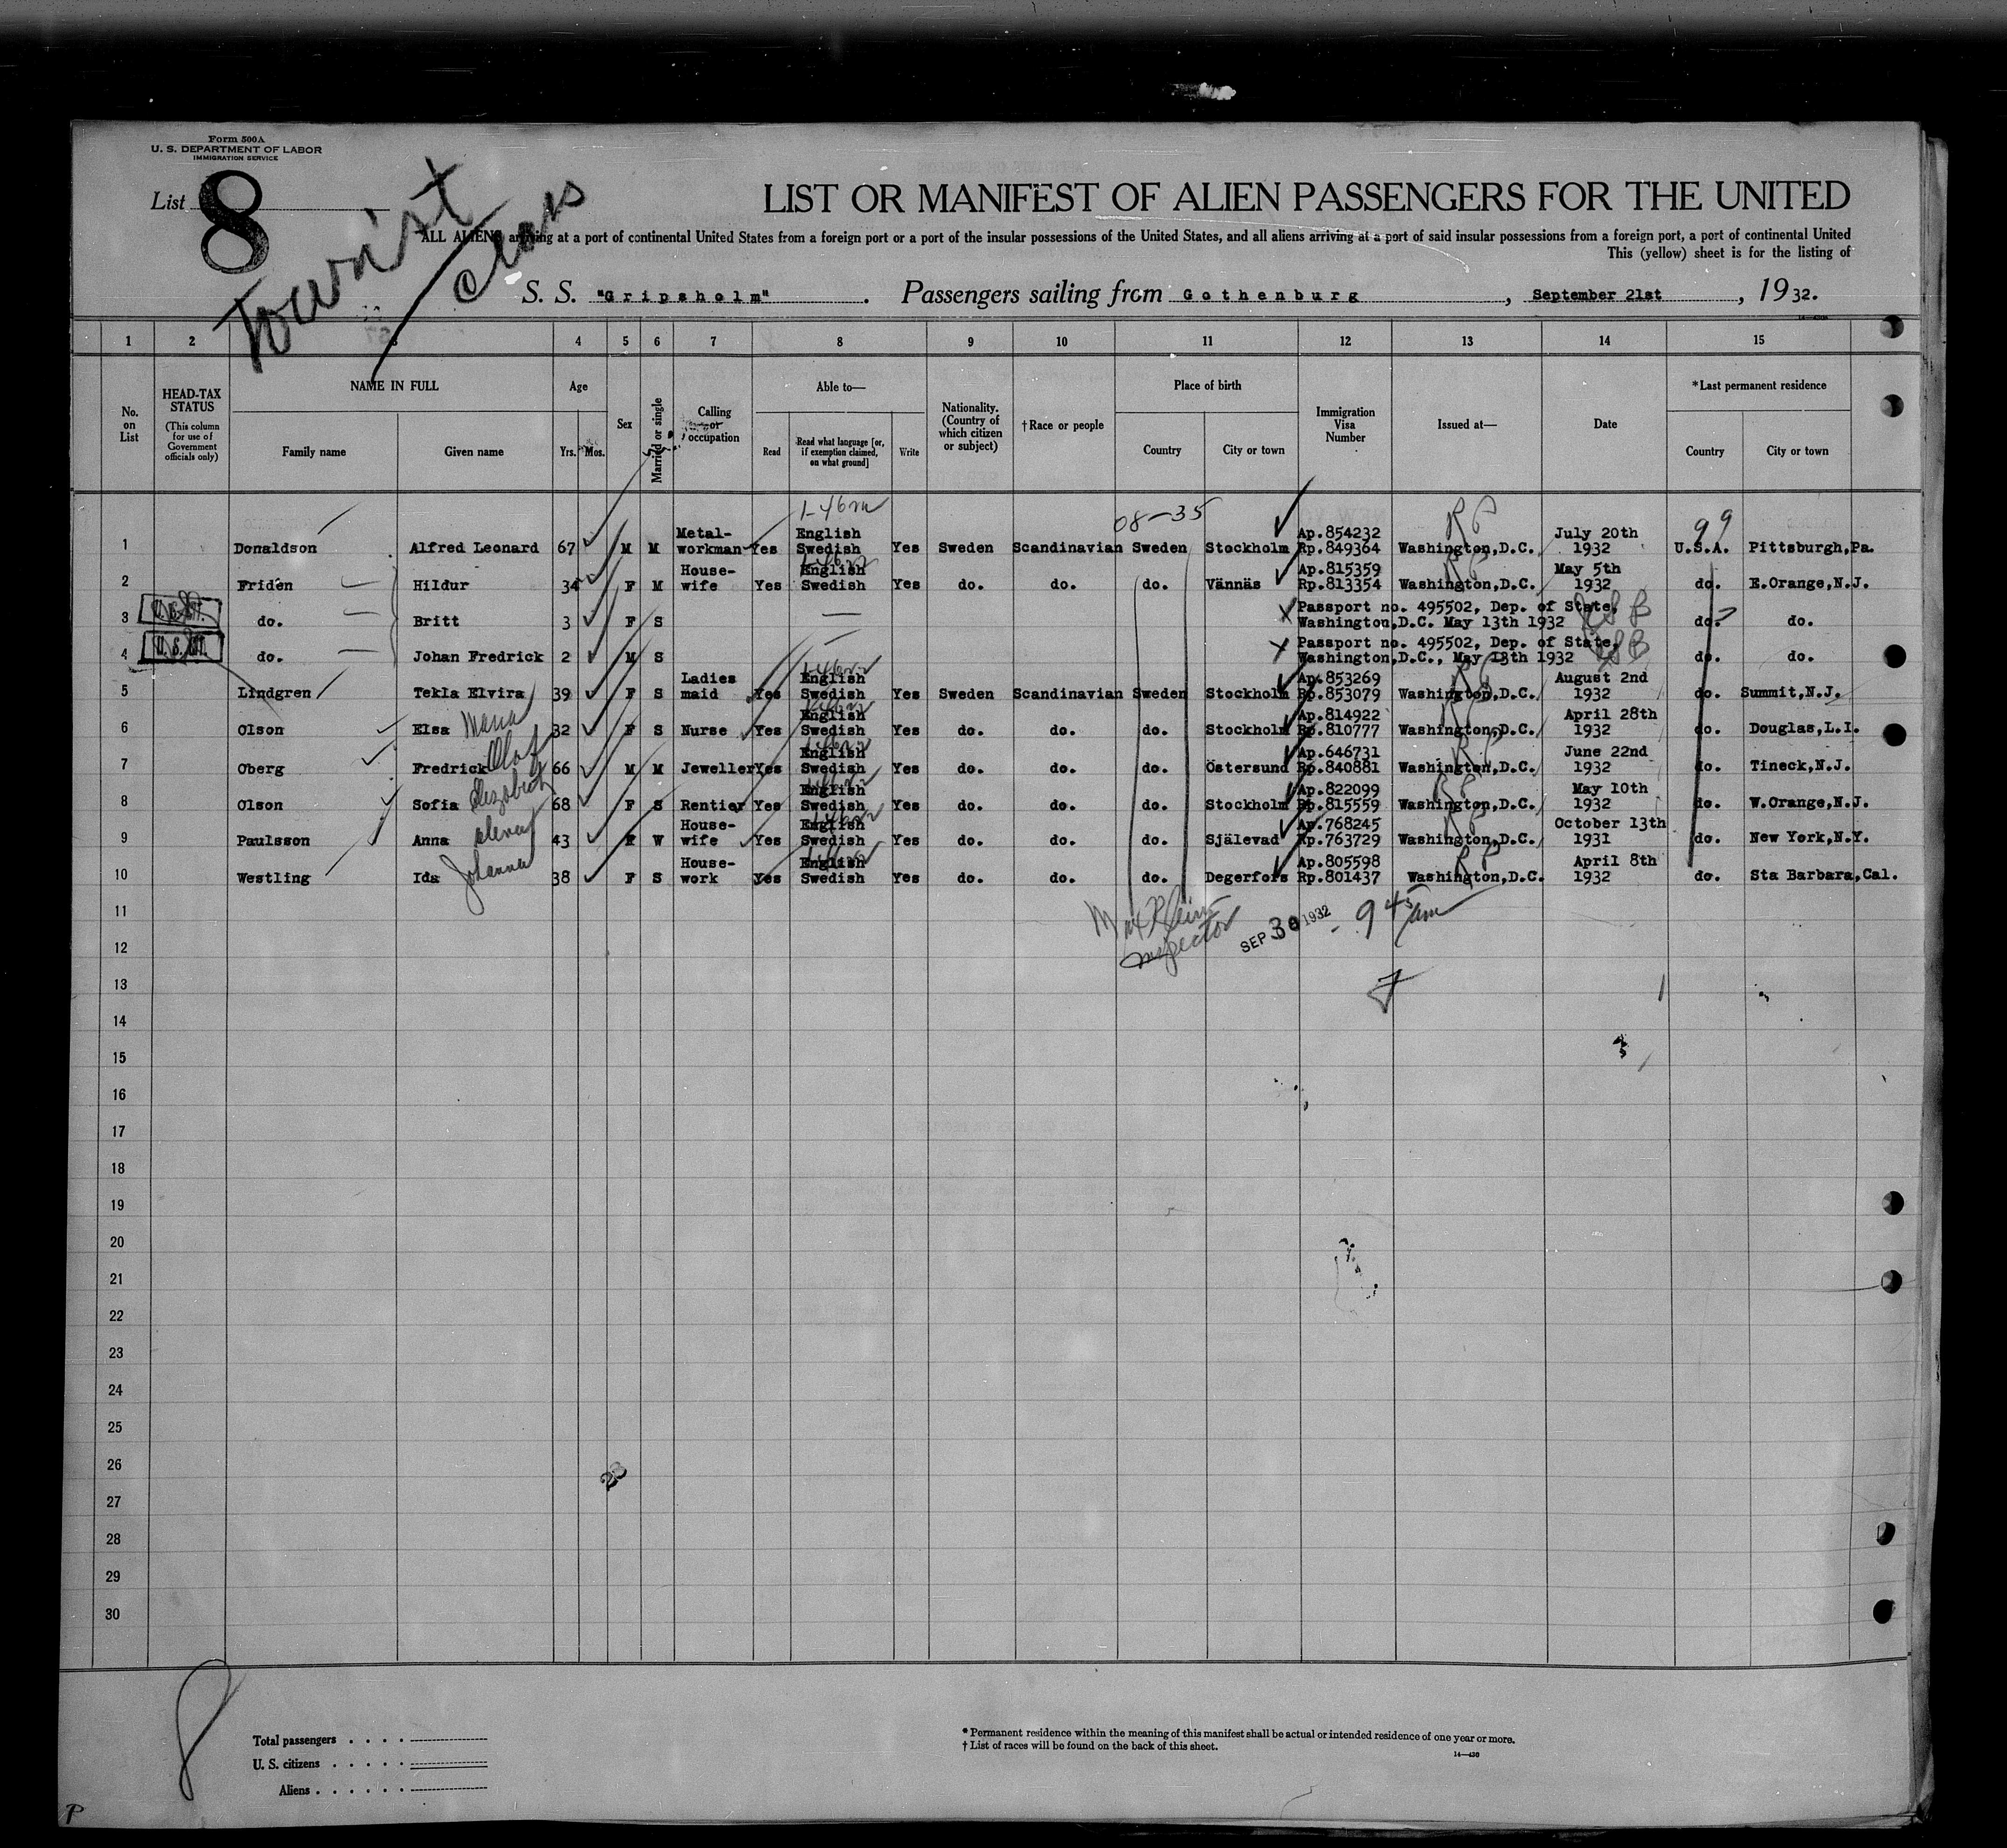 Form 500A
U. S. DEPARTMENT OF LABOR
IMMIGRATION SERVICE
List 8
Tourist
Class
LIST OR MANIFEST OF ALIEN PASSENGERS FOR THE UNITED
ALL ALIENS arriving at a port of continental United States from a foreign port or a port of the insular possessions of the United States, and all aliens arriving at a port of said insular possessions from a foreign port, a port of continental United
This (yellow) sheet is for the listing of
S. S. "Gripsholm" . Passengers sailing from Gothenburg , September 21st , 1932.
1 2 3 4 5 6 7 8 9 10 11 12 13 14 15
No. on List
HEAD-TAX STATUS (This column for use of Government officials only)
NAME IN FULL
Family name Given name
Age
Yrs. Mos.
Sex
Married or single
Calling or occupation
Able to—
Read Read what language [or, if exemption claimed, on what ground] Write
Nationality. (Country of which citizen or subject)
†Race or people
Place of birth
Country City or town
Immigration Visa Number
Issued at—
Date
*Last permanent residence
Country City or town
08-35 RP 99
1 Donaldson Alfred Leonard 67 M M Metal-workman Yes English Swedish Yes Sweden Scandinavian Sweden Stockholm Ap.854232 Rp.849364 Washington,D.C. July 20th 1932 U.S.A. Pittsburgh,Pa.
2 Friden Hildur 34 F M House-wife Yes English Swedish Yes do. do. do. Vännäs Ap.815359 Rp.813354 Washington,D.C. May 5th 1932 do. E.Orange,N.J.
3 do. Britt 3 F S Passport no. 495502, Dep. of State, Washington,D.C. May 13th 1932 do. do.
4 do. Johan Fredrick 2 M S Passport no. 495502, Dep. of State, Washington,D.C., May 13th 1932 do. do.
5 Lindgren Tekla Elvira 39 F S Ladies maid Yes English Swedish Yes Sweden Scandinavian Sweden Stockholm Ap.853269 Rp.853079 Washington,D.C. August 2nd 1932 do. Summit,N.J.
6 Olson Elsa Maria 32 F S Nurse Yes English Swedish Yes do. do. do. Stockholm Ap.814922 Rp.810777 Washington,D.C. April 28th 1932 do. Douglas,L.I.
7 Oberg Fredrick Olof 66 M M Jeweller Yes English Swedish Yes do. do. do. Östersund Ap.646731 Rp.840881 Washington,D.C. June 22nd 1932 do. Tineck,N.J.
8 Olson Sofia Elizabeth 68 F S Rentier Yes English Swedish Yes do. do. do. Stockholm Ap.822099 Rp.815559 Washington,D.C. May 10th 1932 do. W.Orange,N.J.
9 Paulsson Anna 43 F W House-wife Yes English Swedish Yes do. do. do. Själevad Ap.768245 Rp.763729 Washington,D.C. October 13th 1931 do. New York,N.Y.
10 Westling Ida Johanna 38 F S House-work Yes English Swedish Yes do. do. do. Degerfors Ap.805598 Rp.801437 Washington,D.C. April 8th 1932 do. Sta Barbara,Cal.
11
Inspector SEP 30 1932 - 9 45 am
12
13
14
15
16
17
18
19
20
21
22
23
24
25
26
27
28
29
30
8
Total passengers
U. S. citizens
Aliens
* Permanent residence within the meaning of this manifest shall be actual or intended residence of one year or more.
† List of races will be found on the back of this sheet.
14—430
P